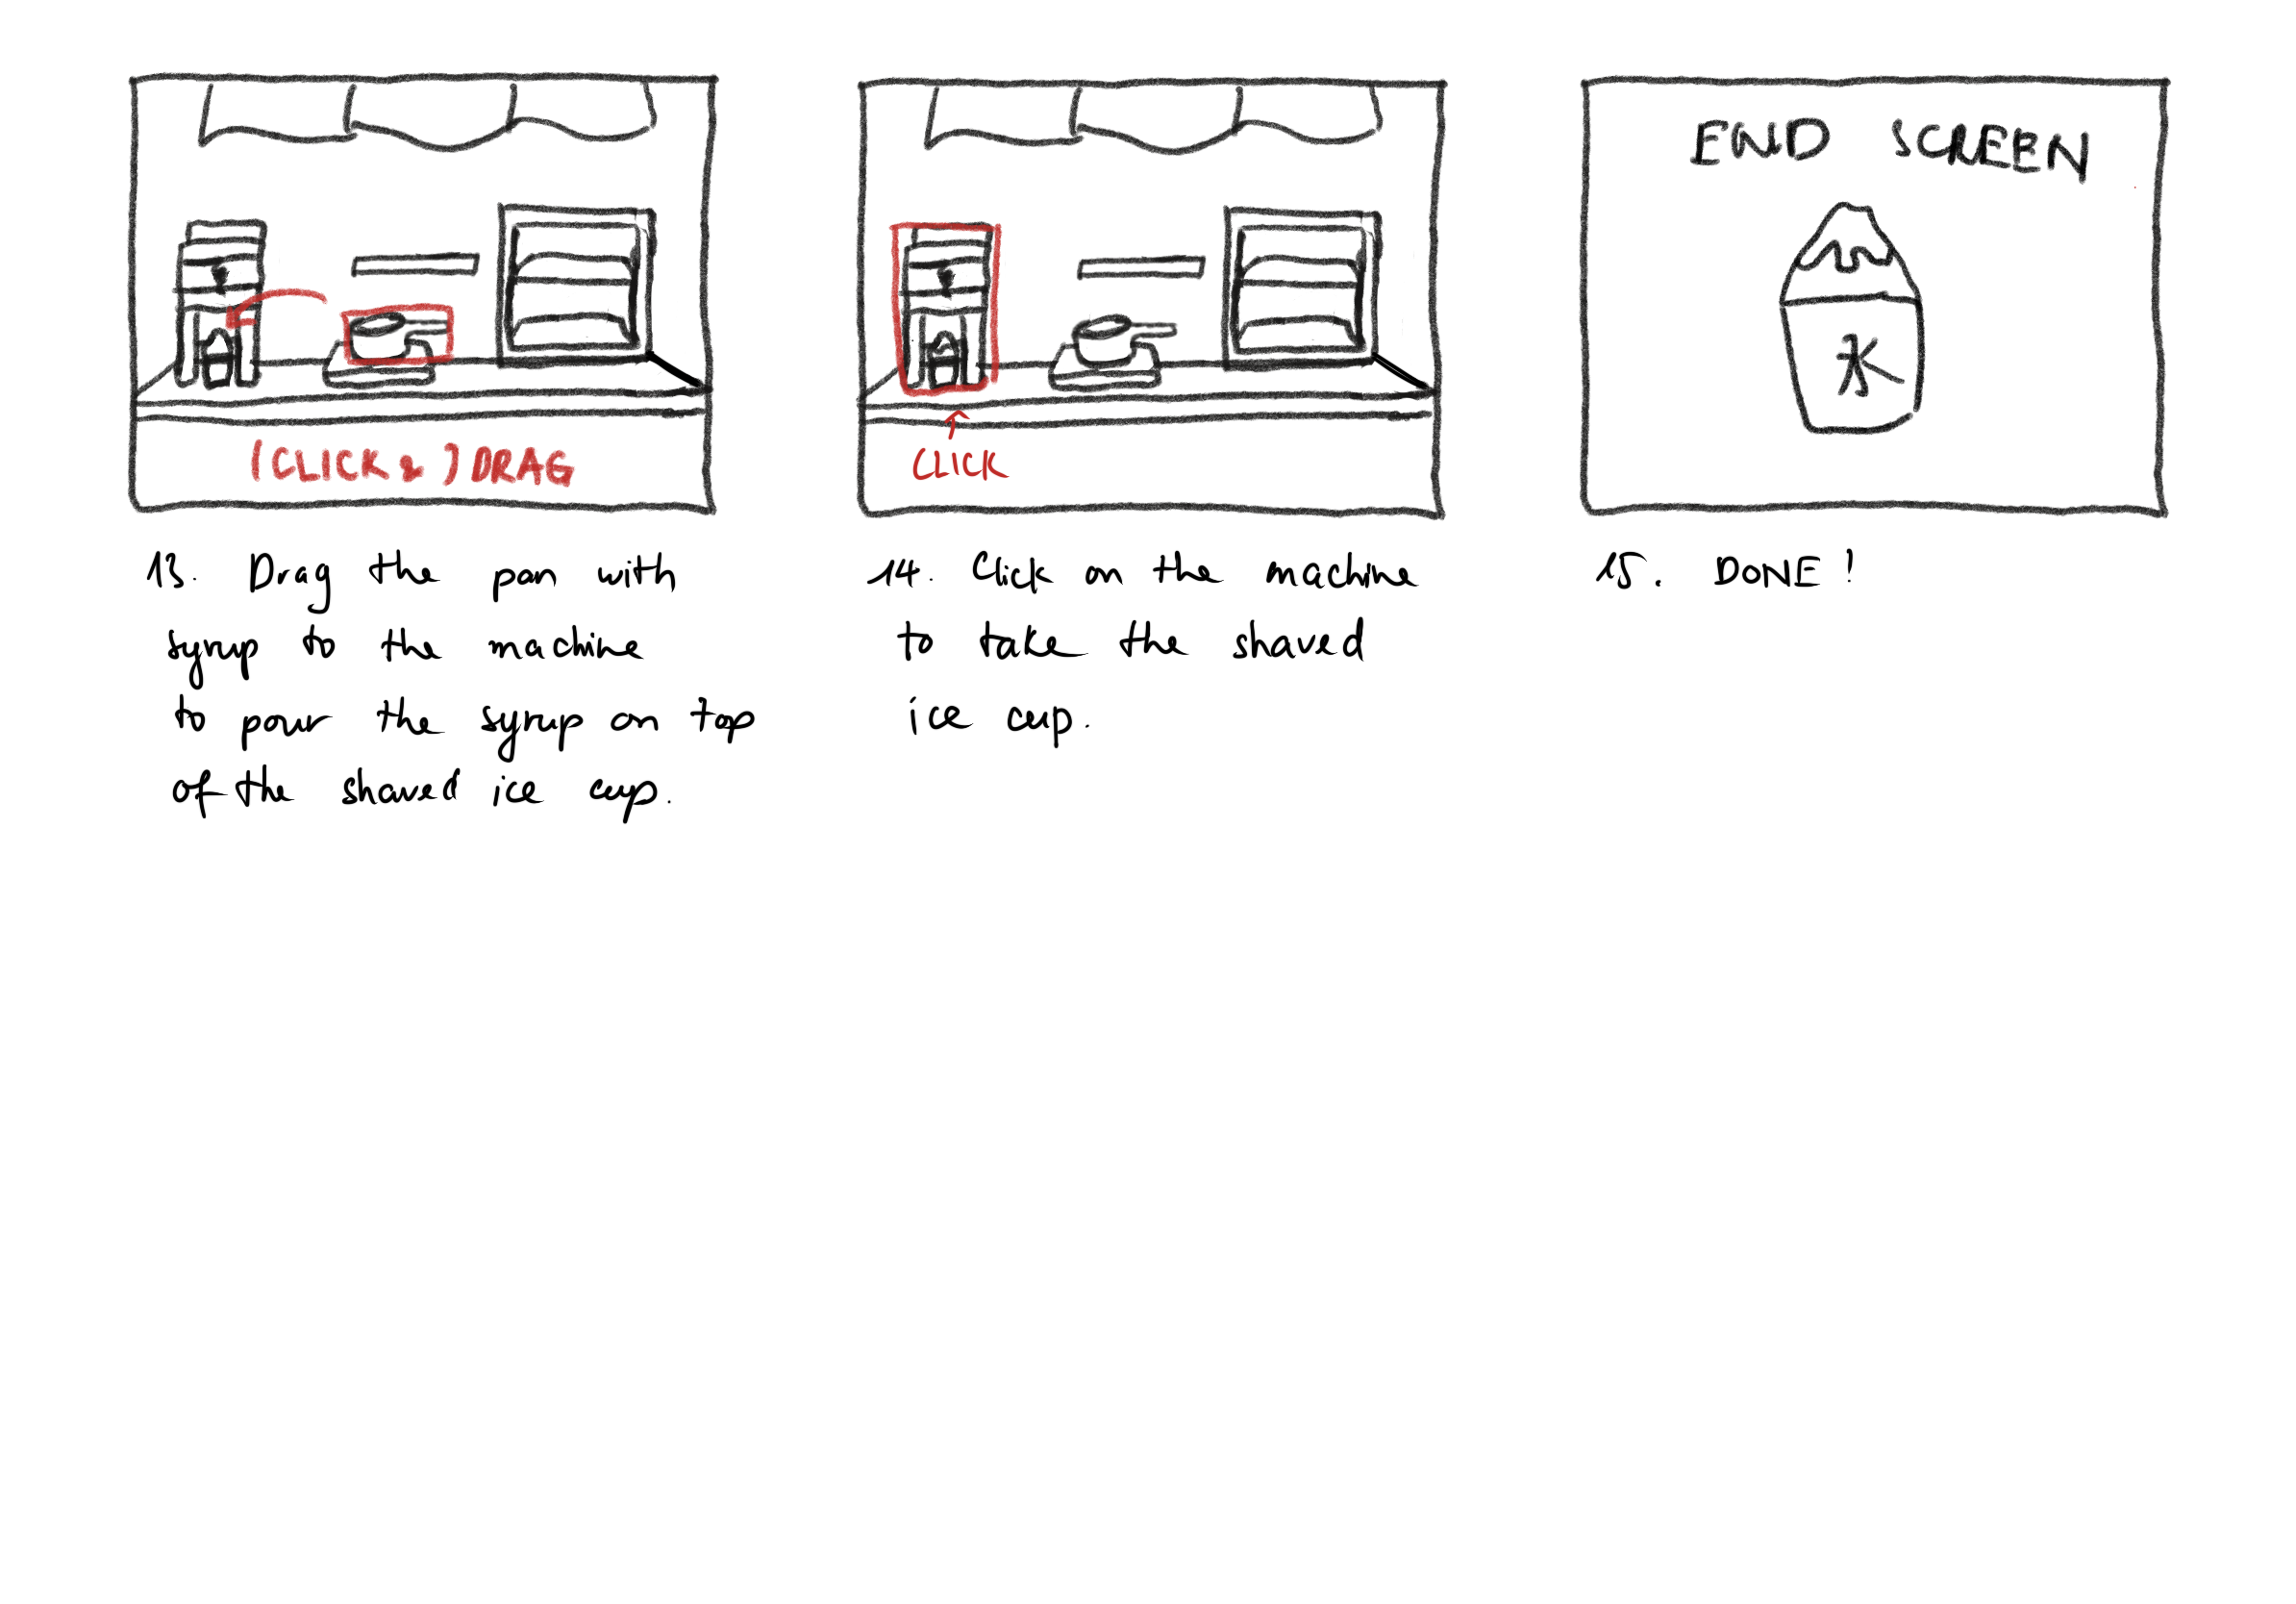 (CLICK & ) DRAG
13. Drag the pan with
syrup to the machine
to pour the syrup on top
of the shaved ice cup.
CLICK
14. Click on the machine
to take the shaved
ice cup.
END SCREEN
氷
15. DONE!